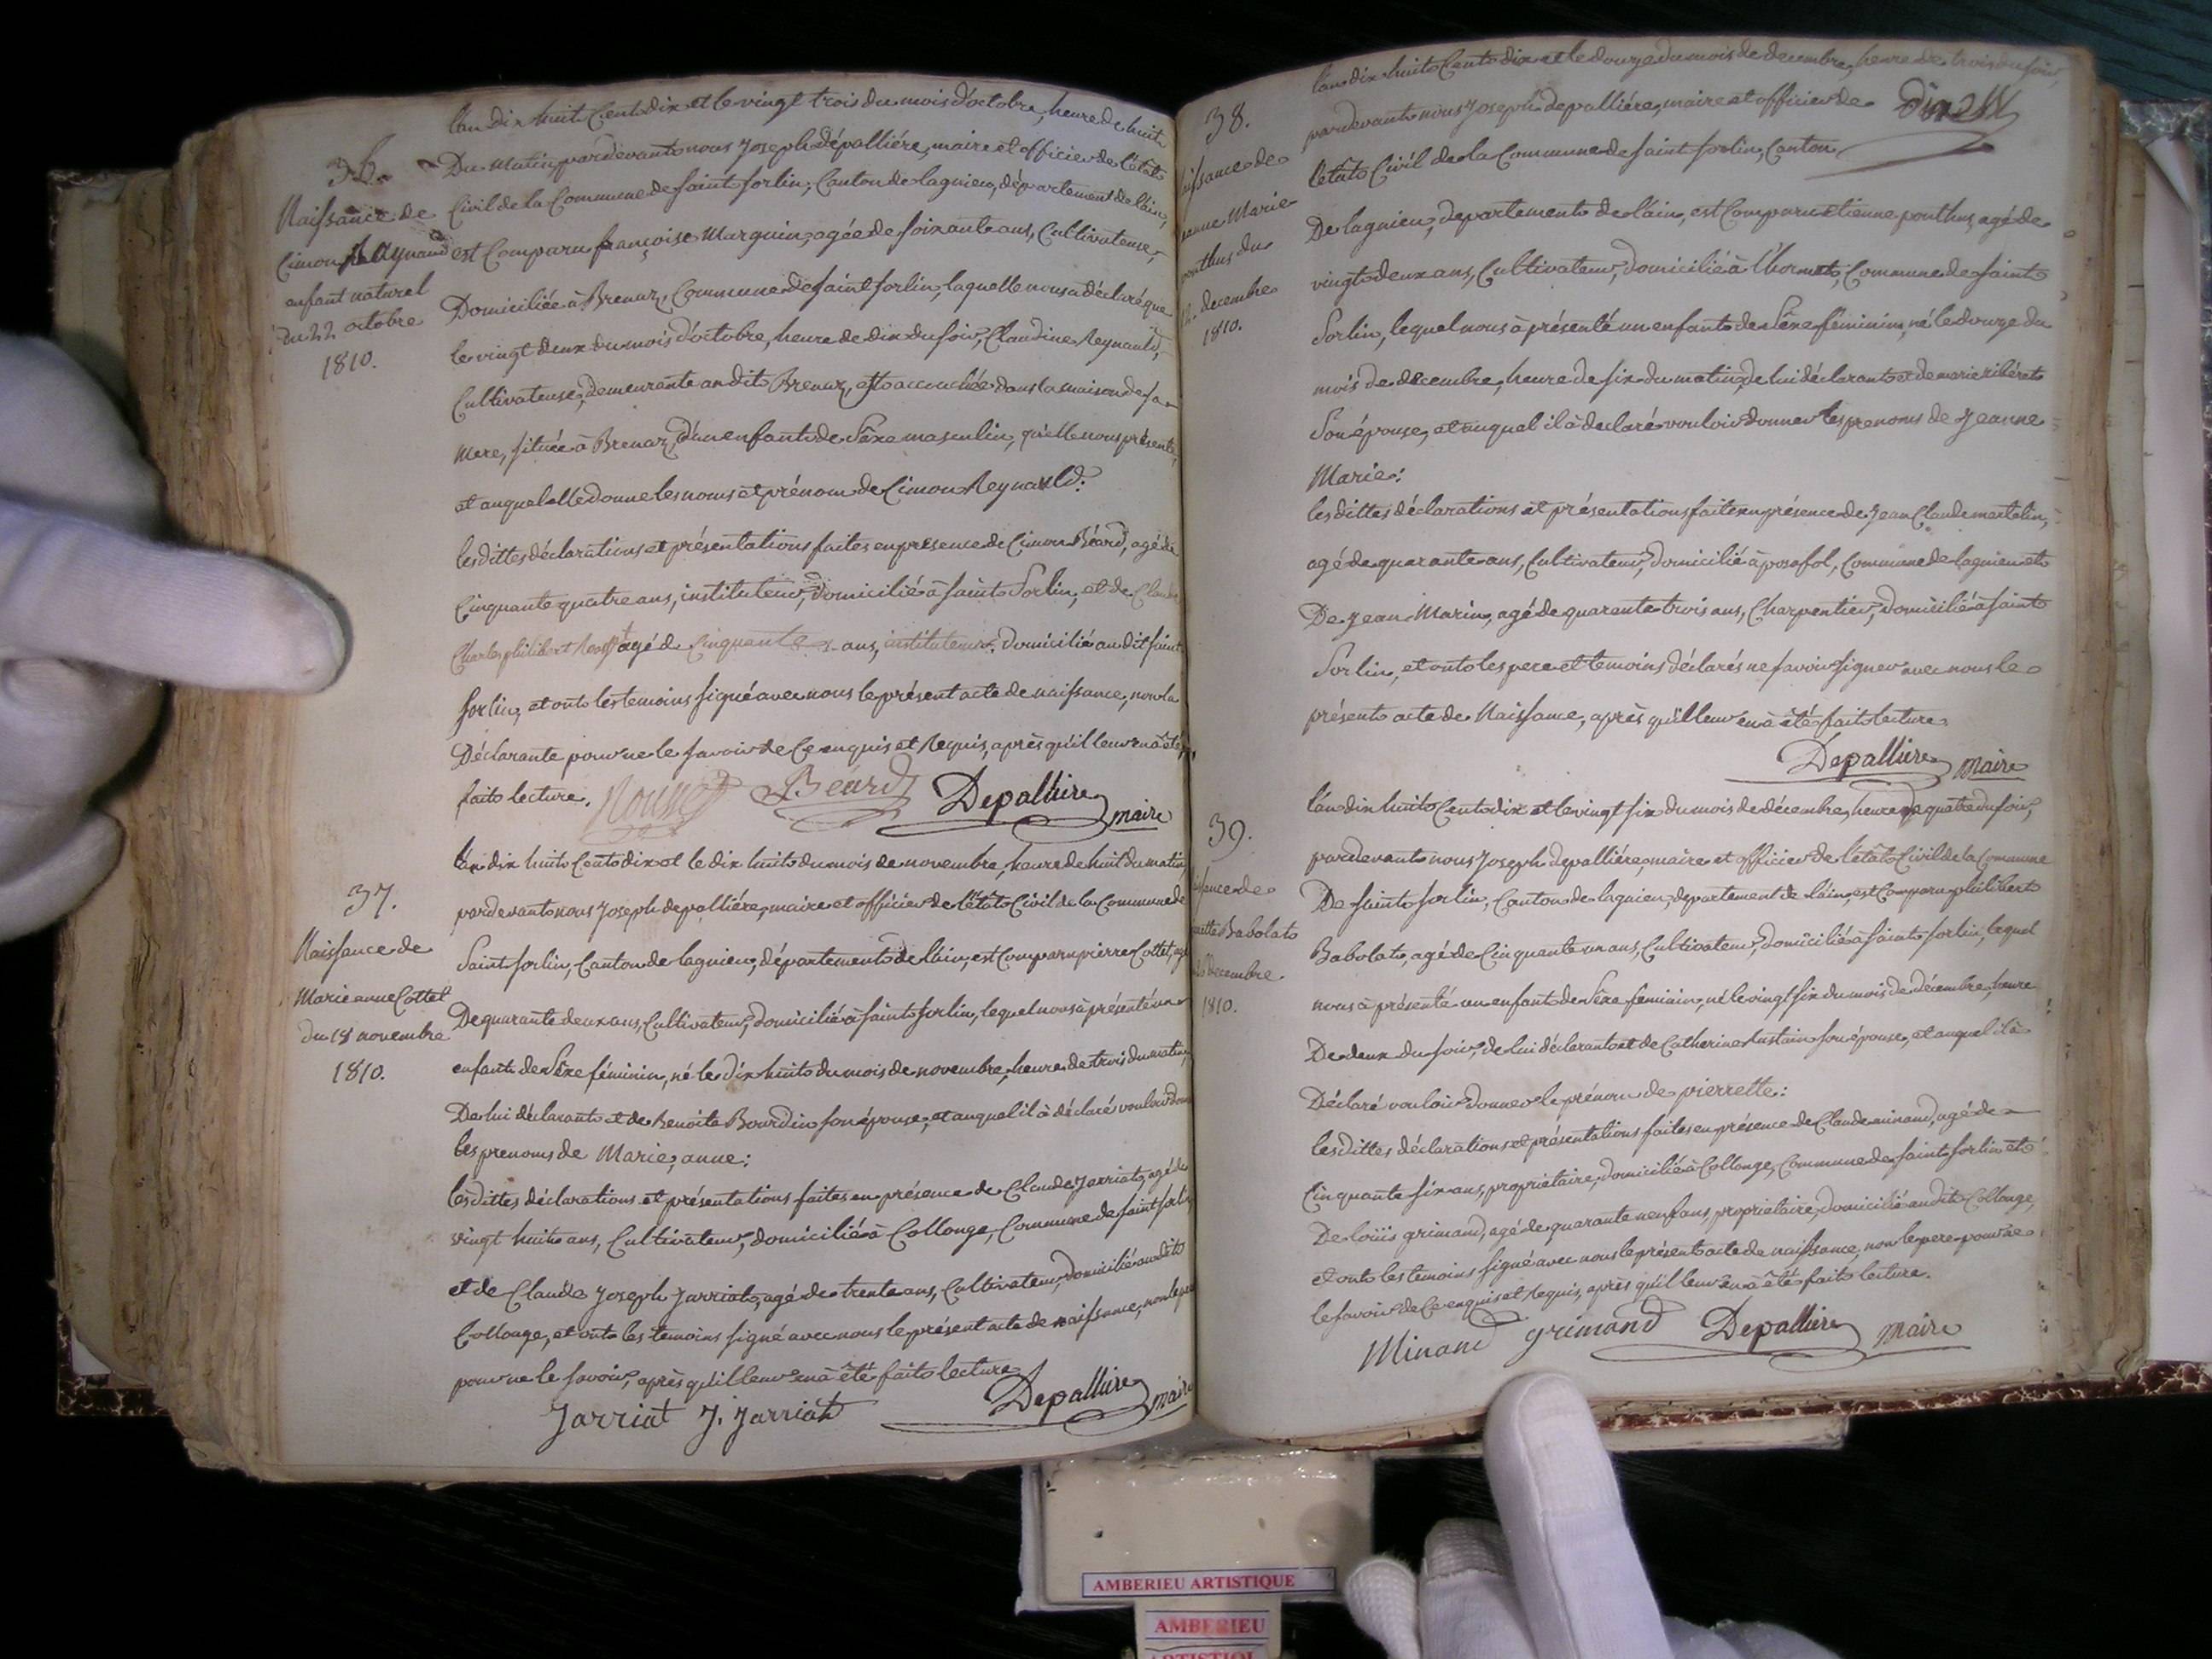 36.
Naissance de
Cimon Reynaud
enfant naturel
du 22 octobre
1810.
L'an dix huit Cent dix et le vingt trois du mois d'octobre, heure de huit
Du Matin, pardevant nous Joseph dépalliére, maire et officier de l'état
Civil de la Commune de saint sorlin, Canton de lagnieu, département de l'ain,
est Comparu françoise Marguin, agée de soixante ans, Cultivateuse,
Domiciliée à Brenaz, Commune de saint sorlin, laquelle nous a déclaré que
le vingt deux du mois d'octobre, heure de dix du soir, Claudine Reynauld,
Cultivateuse, demeurante audit Brenaz, est accouchée dans la maison de sa
mere, située à Brenaz, d'un enfant de Sèxe masculin, qu'elle nous présente,
et auquel elle donne les noms et prénom de Cimon Reynauld:
les dittes déclarations et présentations faites en présence de Cimon Béard, agé de
Cinquante quatre ans, instituteur, domicilié à saint Sorlin, et de Claude
Charles philibert agé de Cinquante ans, instituteur, domicilié au dit saint
sorlin, et ont les temoins signé avec nous le présent acte de naissance, non la
Déclarante pour ne le savoir de Ce enquis et Requis, après qu'il leur en à été
fait lecture.
Rousset Béard Depalliere maire
37.
Naissance de
Marie anne Cottet
du 18 novembre
1810.
L'an dix huit Cent dix et le dix huit du mois de novembre, heure de huit du matin,
pardevant nous Joseph depalliére, maire et officier de l'état Civil de la Commune de
Saint sorlin, Canton de lagnieu, département de l'ain, est Comparu pierre Cottet, agé
De quarante deux ans, Cultivateur, domicilié à saint sorlin, lequel nous à présenté un
enfant de Sèxe féminin, né le dix huit du mois de novembre, heure de trois du matin,
De lui déclarant et de Benoite Bourdin son épouse, et auquel il à déclaré vouloir donner
les prenoms de Marie, anne:
les dittes déclarations et présentations faites en présence de Claude Jarriat, agé de
vingt huit ans, Cultivateur, domicilié à Collonge, Commune de saint sorlin
et de Claude Joseph Jarriat, agé de trente ans, Cultivateur, domicilié audit
Collonge, et ont les temoins signé avec nous le présent acte de naissance, non le pere
pour ne le savoir, après qu'il leur en à été fait lecture
Jarriat J. Jarriat Depalliere maire
38.
issance de
anne Marie
ponthus du
12. decembre
1810.
l'an dix huit Cent dix et le douze du mois de decembre, heure de trois du soir,
pardevant nous Joseph depalliére, maire et officier de
l'état Civil de la Commune de saint sorlin, Canton
De lagnieu, departement de l'ain, est Comparu Etienne ponthus, agé de
vingt deux ans, Cultivateur, domicilié à l'hormet, Commune de saint
Sorlin, lequel nous à présenté un enfant de Sèxe féminin, né le douze du
mois de décembre, heure de six du matin, de lui déclarant et de marie
Son épouse, et auquel il à declaré vouloir donner les prenoms de Jeanne
Marie:
les dittes déclarations et présentations faites en présence de Jean Claude martelin,
agé de quarante ans, Cultivateur, domicilié à posafol, Commune de lagnieu et
De Jean Marin, agé de quarente trois ans, Charpentier, domicilié à saint
Sorlin, et ont les pere et temoins déclarés ne savoir signer avec nous le
présent acte de Naissance, après qu'il leur en à été fait lecture
Depalliere maire
39.
issance de
Babolat
decembre
1810.
l'an dix huit Cent dix et le vingt six du mois de décembre, heure de quatre du soir,
pardevant nous Joseph depalliére, maire et officier de l'état Civil de la Commune
De saint sorlin, Canton de lagnieu, departement de l'ain, est Comparu philibert
Babolat, agé de Cinquante un ans, Cultivateur, domicilié à saint sorlin, lequel
nous à présenté un enfant de Sèxe feminin, né le vingt six du mois de décembre, heure
De deux du soir, de lui déclarant et de Catherine son épouse, et auquel il à
Déclaré vouloir donner le prénom de pierrette:
les dittes déclarations et présentations faites en présence de Claude minand, agé de
Cinquante six ans, propriétaire, domicilié à Collonge, Commune de saint sorlin et
De loüis grimand, agé de quarante neuf ans, propriétaire, domicilié audit Collonge,
et ont les temoins signé avec nous le présent acte de naissance, non le pere pour ne
le savoir de Ce enquis et Requis, après qu'il leur en à été fait lecture.
Minand grimand Depalliere maire
AMBERIEU ARTISTIQUE
AMBERIEU
ARTISTIQUE